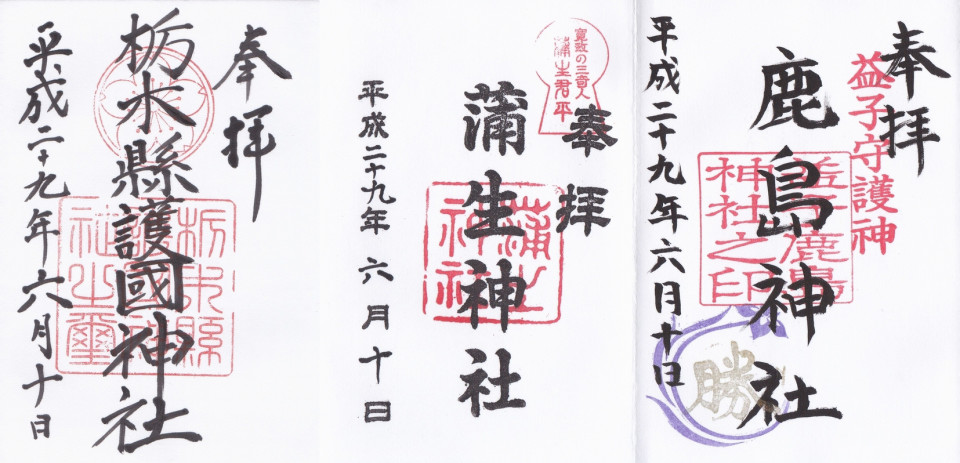 奉拝
栃木縣護國神社
平成二十九年六月十日
寛政の三奇人
蒲生君平
奉拝
蒲生神社
蒲生神社
平成二十九年六月十日
奉拝
益子守護神
鹿島神社
神社之印
平成二十九年六月十日
勝